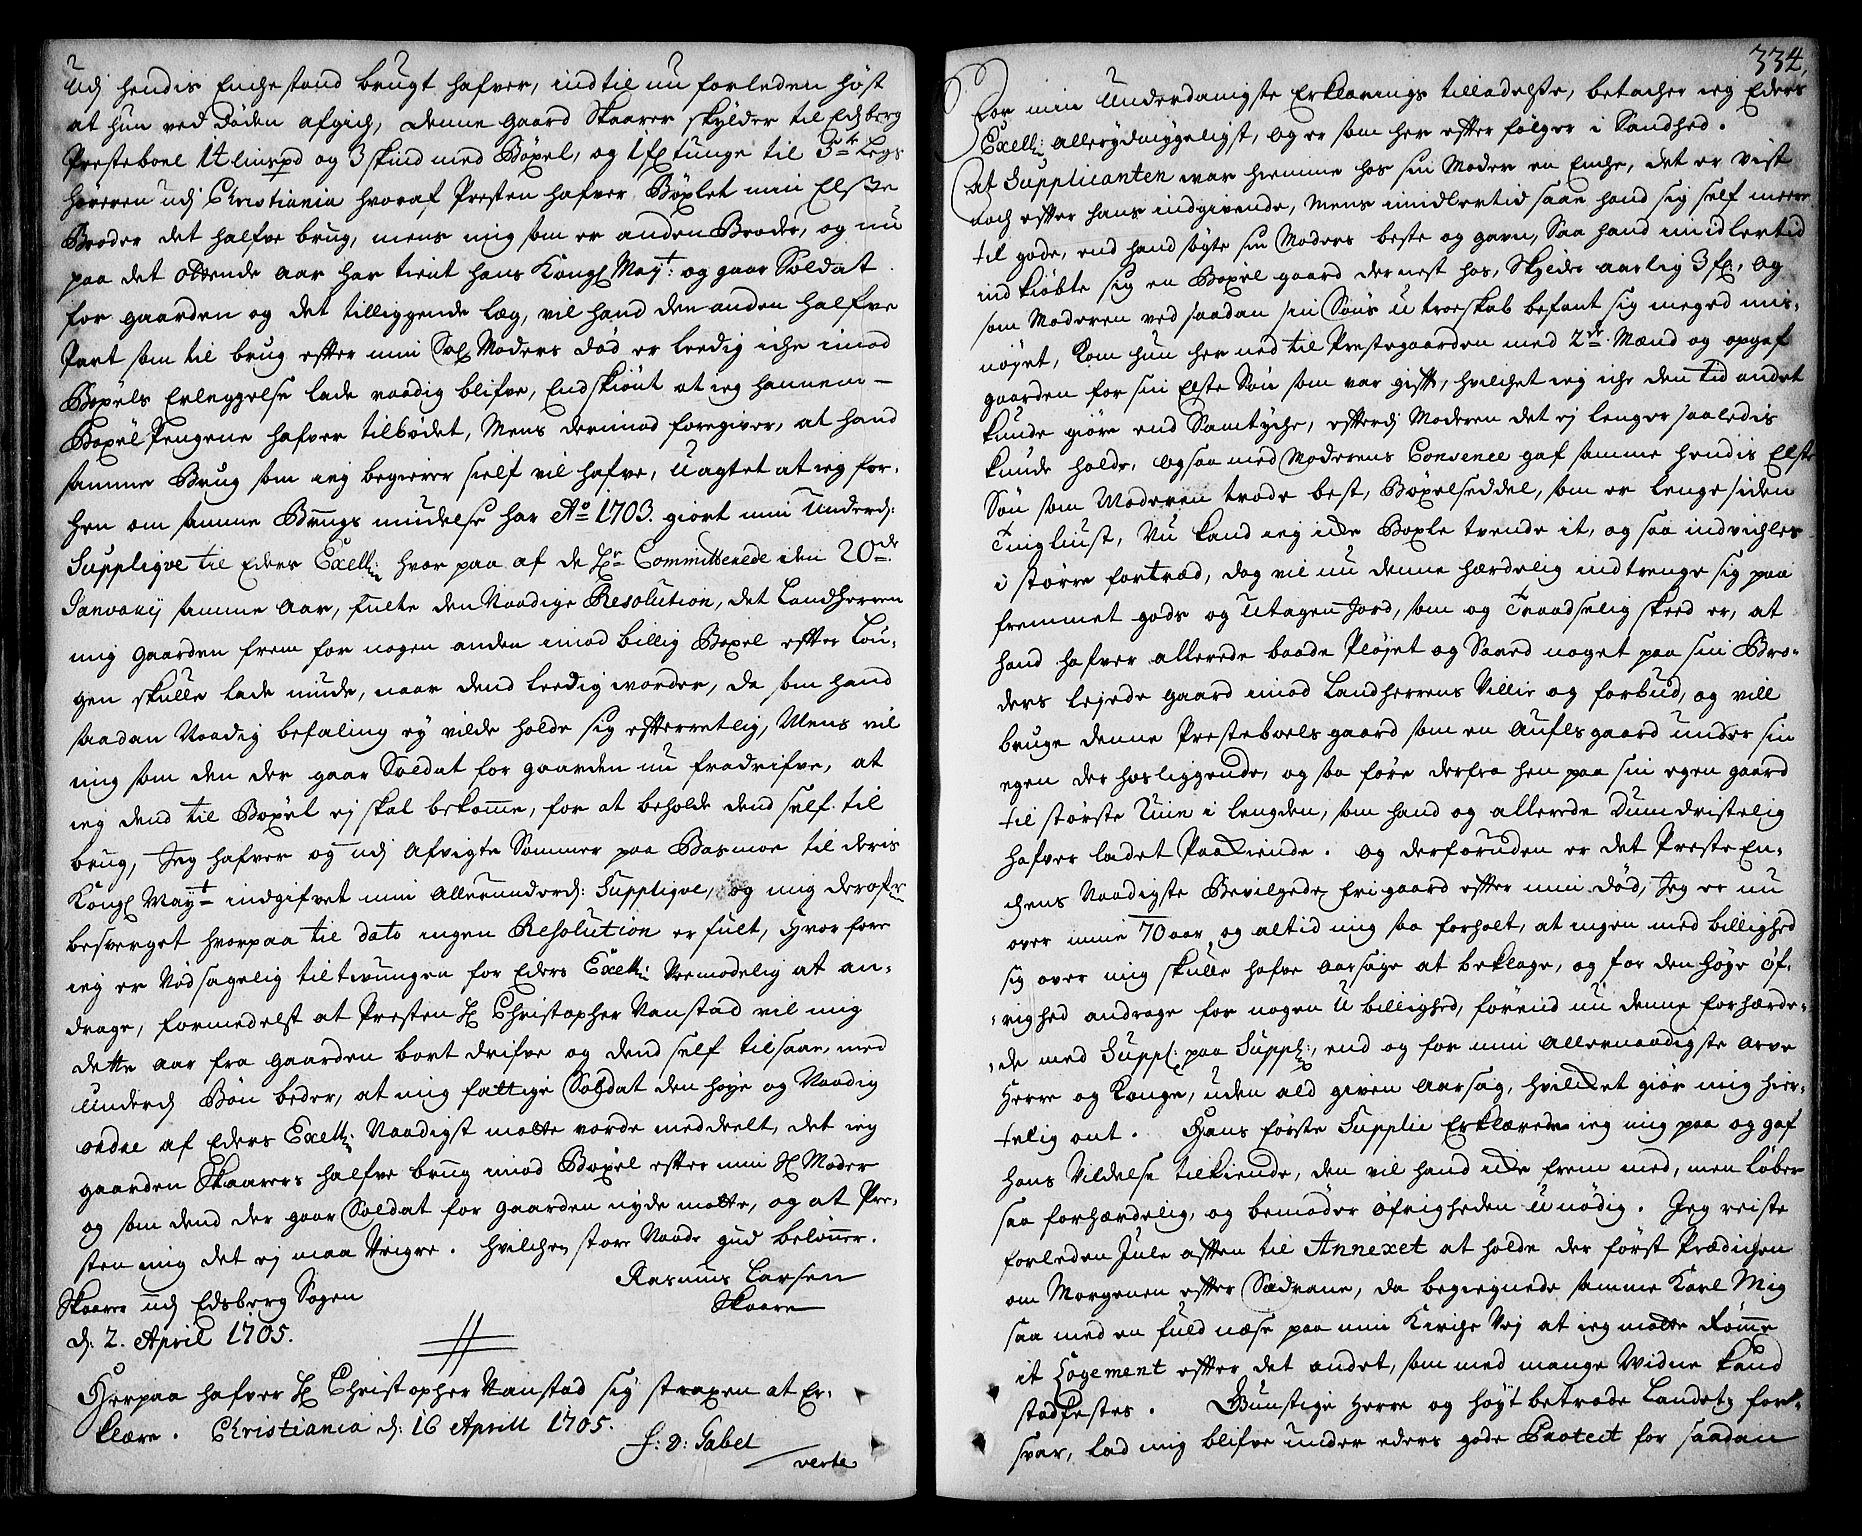 Udj hendis Enchestand brugt hafver, indtil nu forleden høst
at hun ved Døden afgich, denne gaard Skaarer skylder til Edsberg
Presteboel 1t lispd og 3 skind med Böxel, og 1 fl tunge til
höreren udj Christiania hvoraf Presten hafver Böxlet min Elste
Broder det halfve brug, mens mig som er anden Broder, og nu
paa det ottende aar har tient hans Kongl Mayt: og gaar Soldat
for gaarden og det tilliggende læg, vil hand den anden halfve
Part som til brug effter min Sal Moders död er leedig iche imod
Böxels Erleggelse lade naadig blifve, Endskiönt at ieg hannem –
Böxel Pengene hafver tilbödet, Mens derimod foregiver, at hand
samme Brug som ieg begierer sielf vil hafve, Uagtet at ieg for-
hen om samme Brugs nndelse har Ao 1703. giort min Underd:
Suppliqve til Eders Exell: hvor paa af de Hr Committerede den 20de
Januarij samme Aar, fulte den Naadige Resolution, det Landherren
mig gaarden frem for nogen anden imod billig Böxel effter Lou-
gen skulle lade nnde, naar dend leedig worder, da som hand
saadan Naadig befaling ey vilde holde sig effterretlig, Mens vil
mig som den der gaar Soldat for gaarden nu fradrifve, at
ieg dend til Böxel ej skal bekomme, for at beholde dend self til
brug, Jeg hafver og udj afvigte Sommer paa Basmoe til deris
Kongl Mayt indgifvet min Allerunderd: Supplique, og mig derofr
besverget hvorpaa til dato ingen Resolution er fult, Hvor fore
ieg er Nödsagelig tiltvungen for Eders Exell: Veemodelig at an-
drage, formedelst at Presten Hr Christopher Nanstad vil mig
dette aar fra gaarden bort drifve og dend self tilsaae, med
Underd Bön beder, at mig fattige Soldat den høye og Naadig
ordre af Eders Exell: Naadigst motte vorde meddeelt, det ieg
gaarden Skaarers halfve brug imod Böxel effter min Sl Moder
og som dend der gaar Soldat for gaarden nyde motte, og at Pre-
sten mig det ej maa Veigre. hvilchen store Naade gud belönner.
Rasmus Larsen
Skaare
Skaarer udj Edsberg Sogen
d: 2. April 1705.
Herpaa hafver Hr Christopher Nanstad sig straxen at Er-
klære. Christiania d: 16 Aprill 1705.
F: D: Gabel
verte
334,
For min Underdanigste Erklærings tilladelsse, betacher ieg Eders
Exell: allerydmygeligst, og er som her effter fölger i Sandhed.
At Supplicanten war hiemme hos sin Moder en Enche, det er vist
noch effter hans indgivende, Mens imidlertid saae hand sig self meere
til gode, end hand søgte sin Moders beste og gavn, Saa hand imidlertid
indkiöbte sig en Böxel gaard dernest hos, Skylder aarlig 3 fl., og
som Moderen ved saadan sin Söns utroeskab befant sig meged mis-
nöyet, Kom hun her ned til Prestegaarden med 2de Mænd og opgaf
gaarden for sin Elste Sön som var gifft, hvilchet ieg iche den tid andet
kunde giöre end Samtyche, effterdj Moderen det ej lenger saaledis
kunde holde, Ogsaa med Moderens Convence gaf samme hendis Elste
Sön som Moderen trode best, Böxelseddel, som er lenge siden
Tinglüst, Nu kand ieg iche Böxle tvende it, og saa indvichles
i større fortræd, dog vil nu denne hærdelig indtrenge sig paa
fremmet gods og Utagen Jord, som og Traadselig skeed er, at
hand hafver allerede baade Plöjet og Saaed noget paa sin Bro-
ders lejede gaard imod Landherrens Villie og forbud, og vill
bruge denne Presteboels gaard som en Aufls gaard under sin
egen der hosliggende, og saa före derfra hen paa sin egen gaard
til störste Ruin i lengden, som hand og allerede Dumdristelig
hafver ladet Paakiende. og derforuden er det Preste En-
chens Naadigste Bevilgede Frigaard effter min död, Jeg er nu
over mine 70 aar, og altid mig saa forholt, at ingen med billighed
sig over mig skulle hafve Aarsage at beklage, og for den høye öf-
righed andrage for nogen Ubillighed, förend nu denne forhærde-
de med Suppl: paa Suppl:, end og for min allernaadigste Arve
Herre og Konge, uden ald given Aarsag, hvilchet giör mig hier-
telig ont. Hans förste Supplic Erklærede ieg mig paa og gaf
hans Vildelse tilkiende, den vil hand iche frem med, men löber
saa forhærdelig, og bemöder öfrigheden unödig. Jeg reiste
forleden Jule afften til Annexet at holde der först Prædichen
om Morgenen effter Sædvane, da begiegnede samme Karl Mig
saa med en fuld næse paa min Kirche Vej at ieg motte Römme
it Logement effter det andet, som med mange Widne kand
stadfestes. Gunstige Herre og høyt betroede Landets for-
svar, lad mig blifve under eders gode Protect for saadan